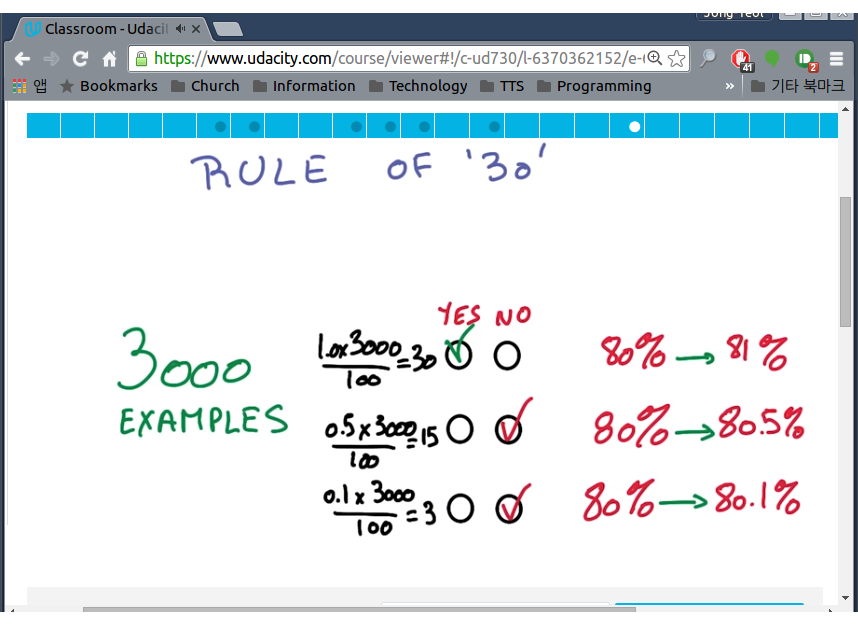 Jong Yeol
Classroom - Udaci
https://www.udacity.com/course/viewer#!/c-ud730/l-6370362152/e-
41
2
앱 Bookmarks Church Information Technology TTS Programming » 기타 북마크
RULE OF '30'
YES NO
3000
EXAMPLES
1.0x3000/100=30 80% → 81%
0.5x3000/100=15 80% → 80.5%
0.1x3000/100=3 80% → 80.1%